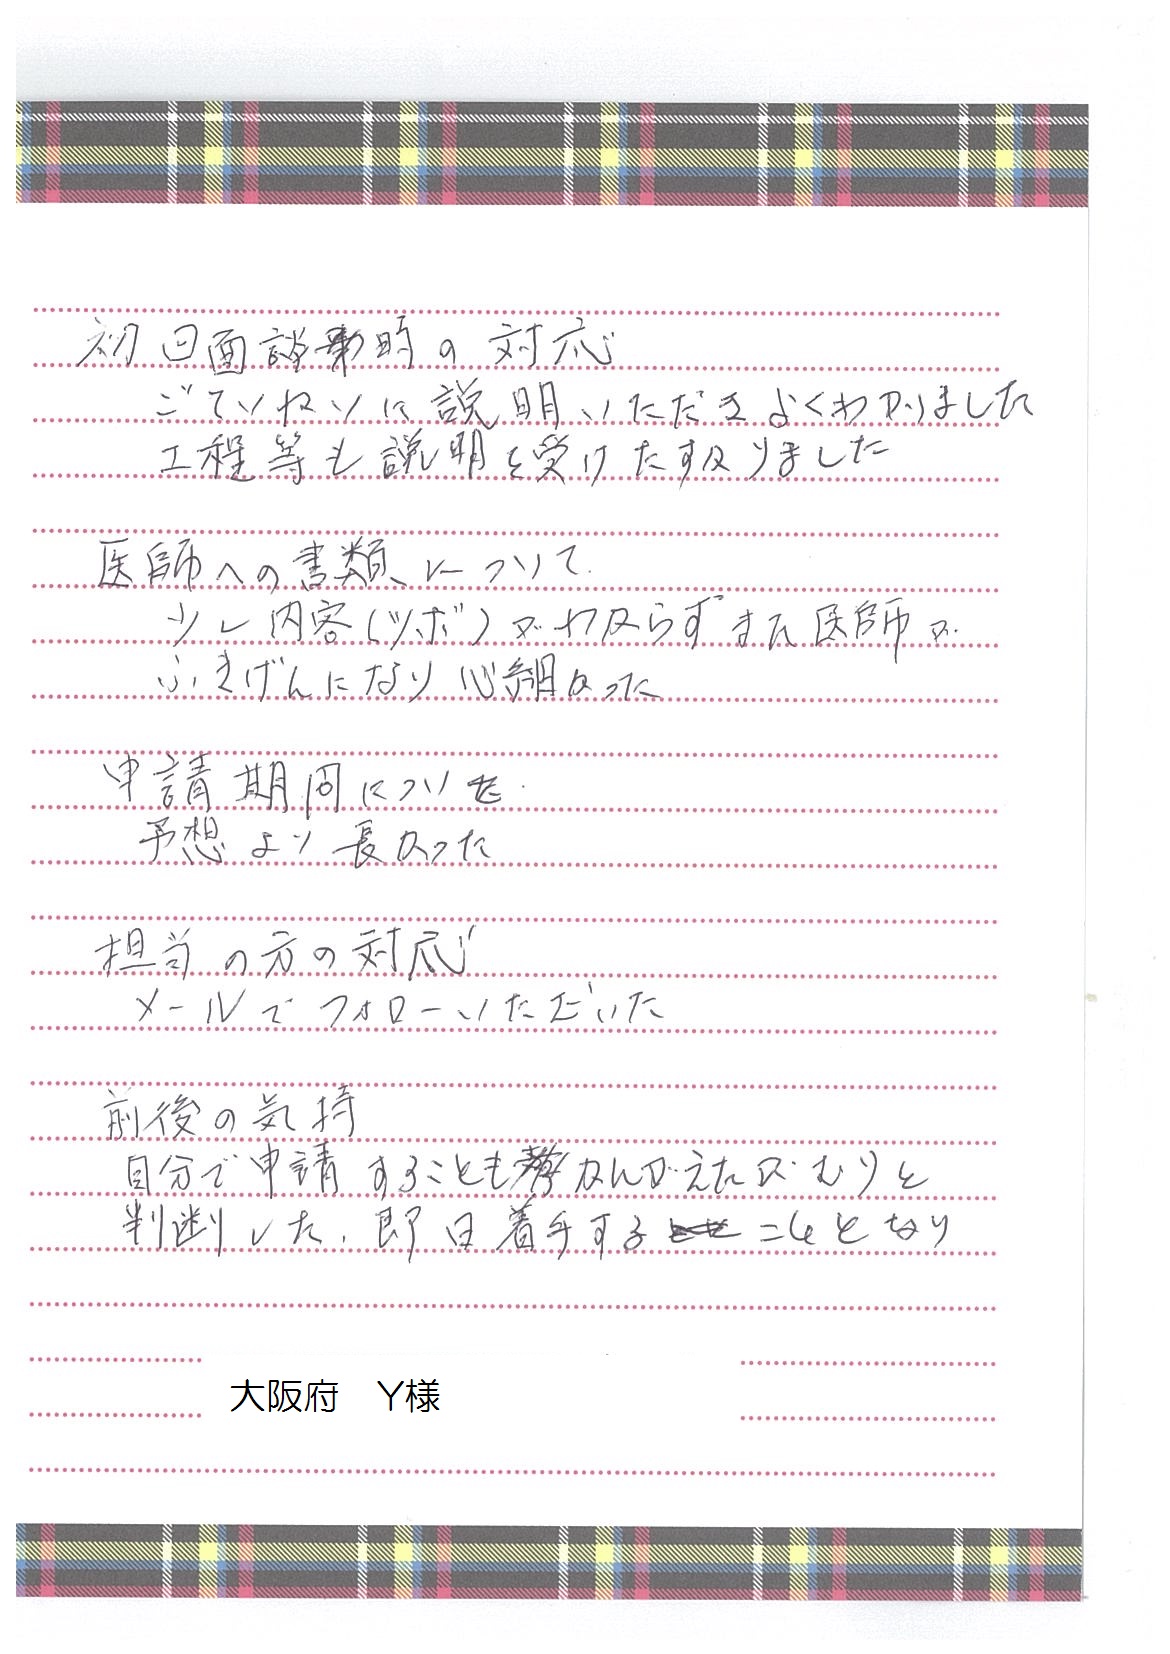 初回面談時の対応
ごていねいに説明いただきよくわかりました
工程等も説明を受けたすかりました
医師への書類について
少し内容(ツボ)がわからずまた医師が
ふきげんになり心細かった
申請期間について
予想より長かった
担当の方の対応
メールでフォローいただいた
前後の気持
自分で申請することもかんがえたがむりと
判断した、即日着手することとなり
大阪府 Y様